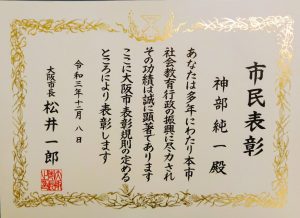 市民表彰
神部純一殿
あなたは多年にわたり本市
社会教育行政の振興に尽力され
その功績は誠に顕著であります
ここに大阪市表彰規則の定める
ところにより表彰します
令和三年十二月八日
大阪市長 松井一郎